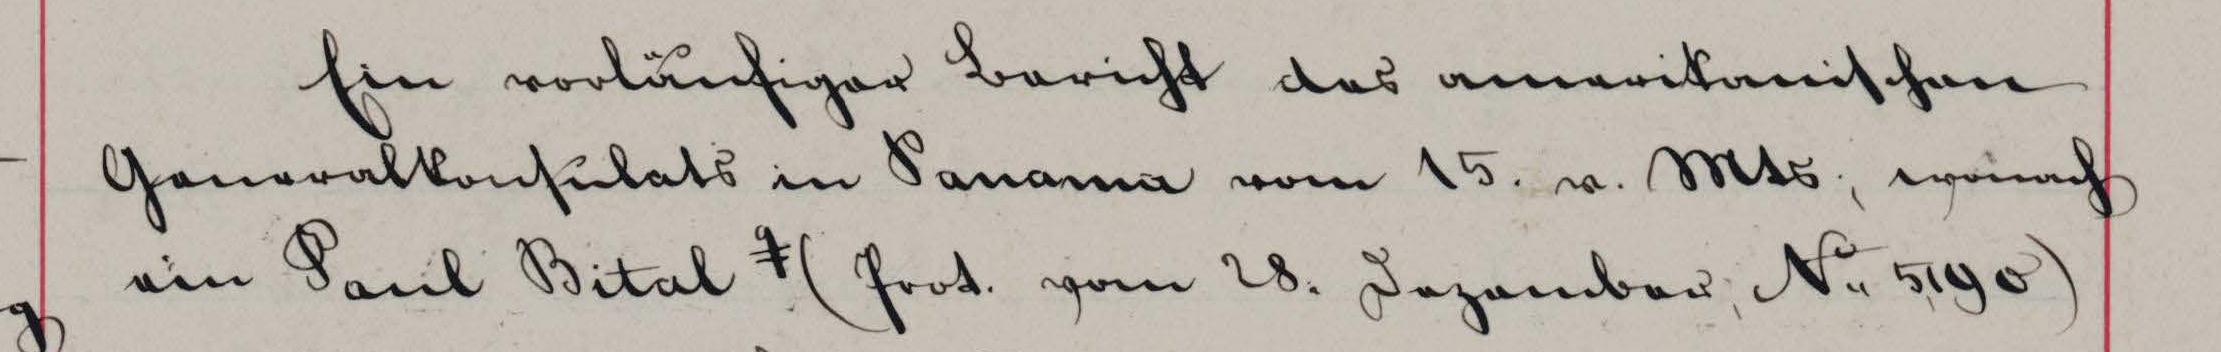 Ein vorläufiger Bericht des amerikanischen
Generalkonsulats in Panama vom 15. v. Mts., wonach
ein Paul Bital ‡ (Prot. vom 28. Dezember, No. 5190)